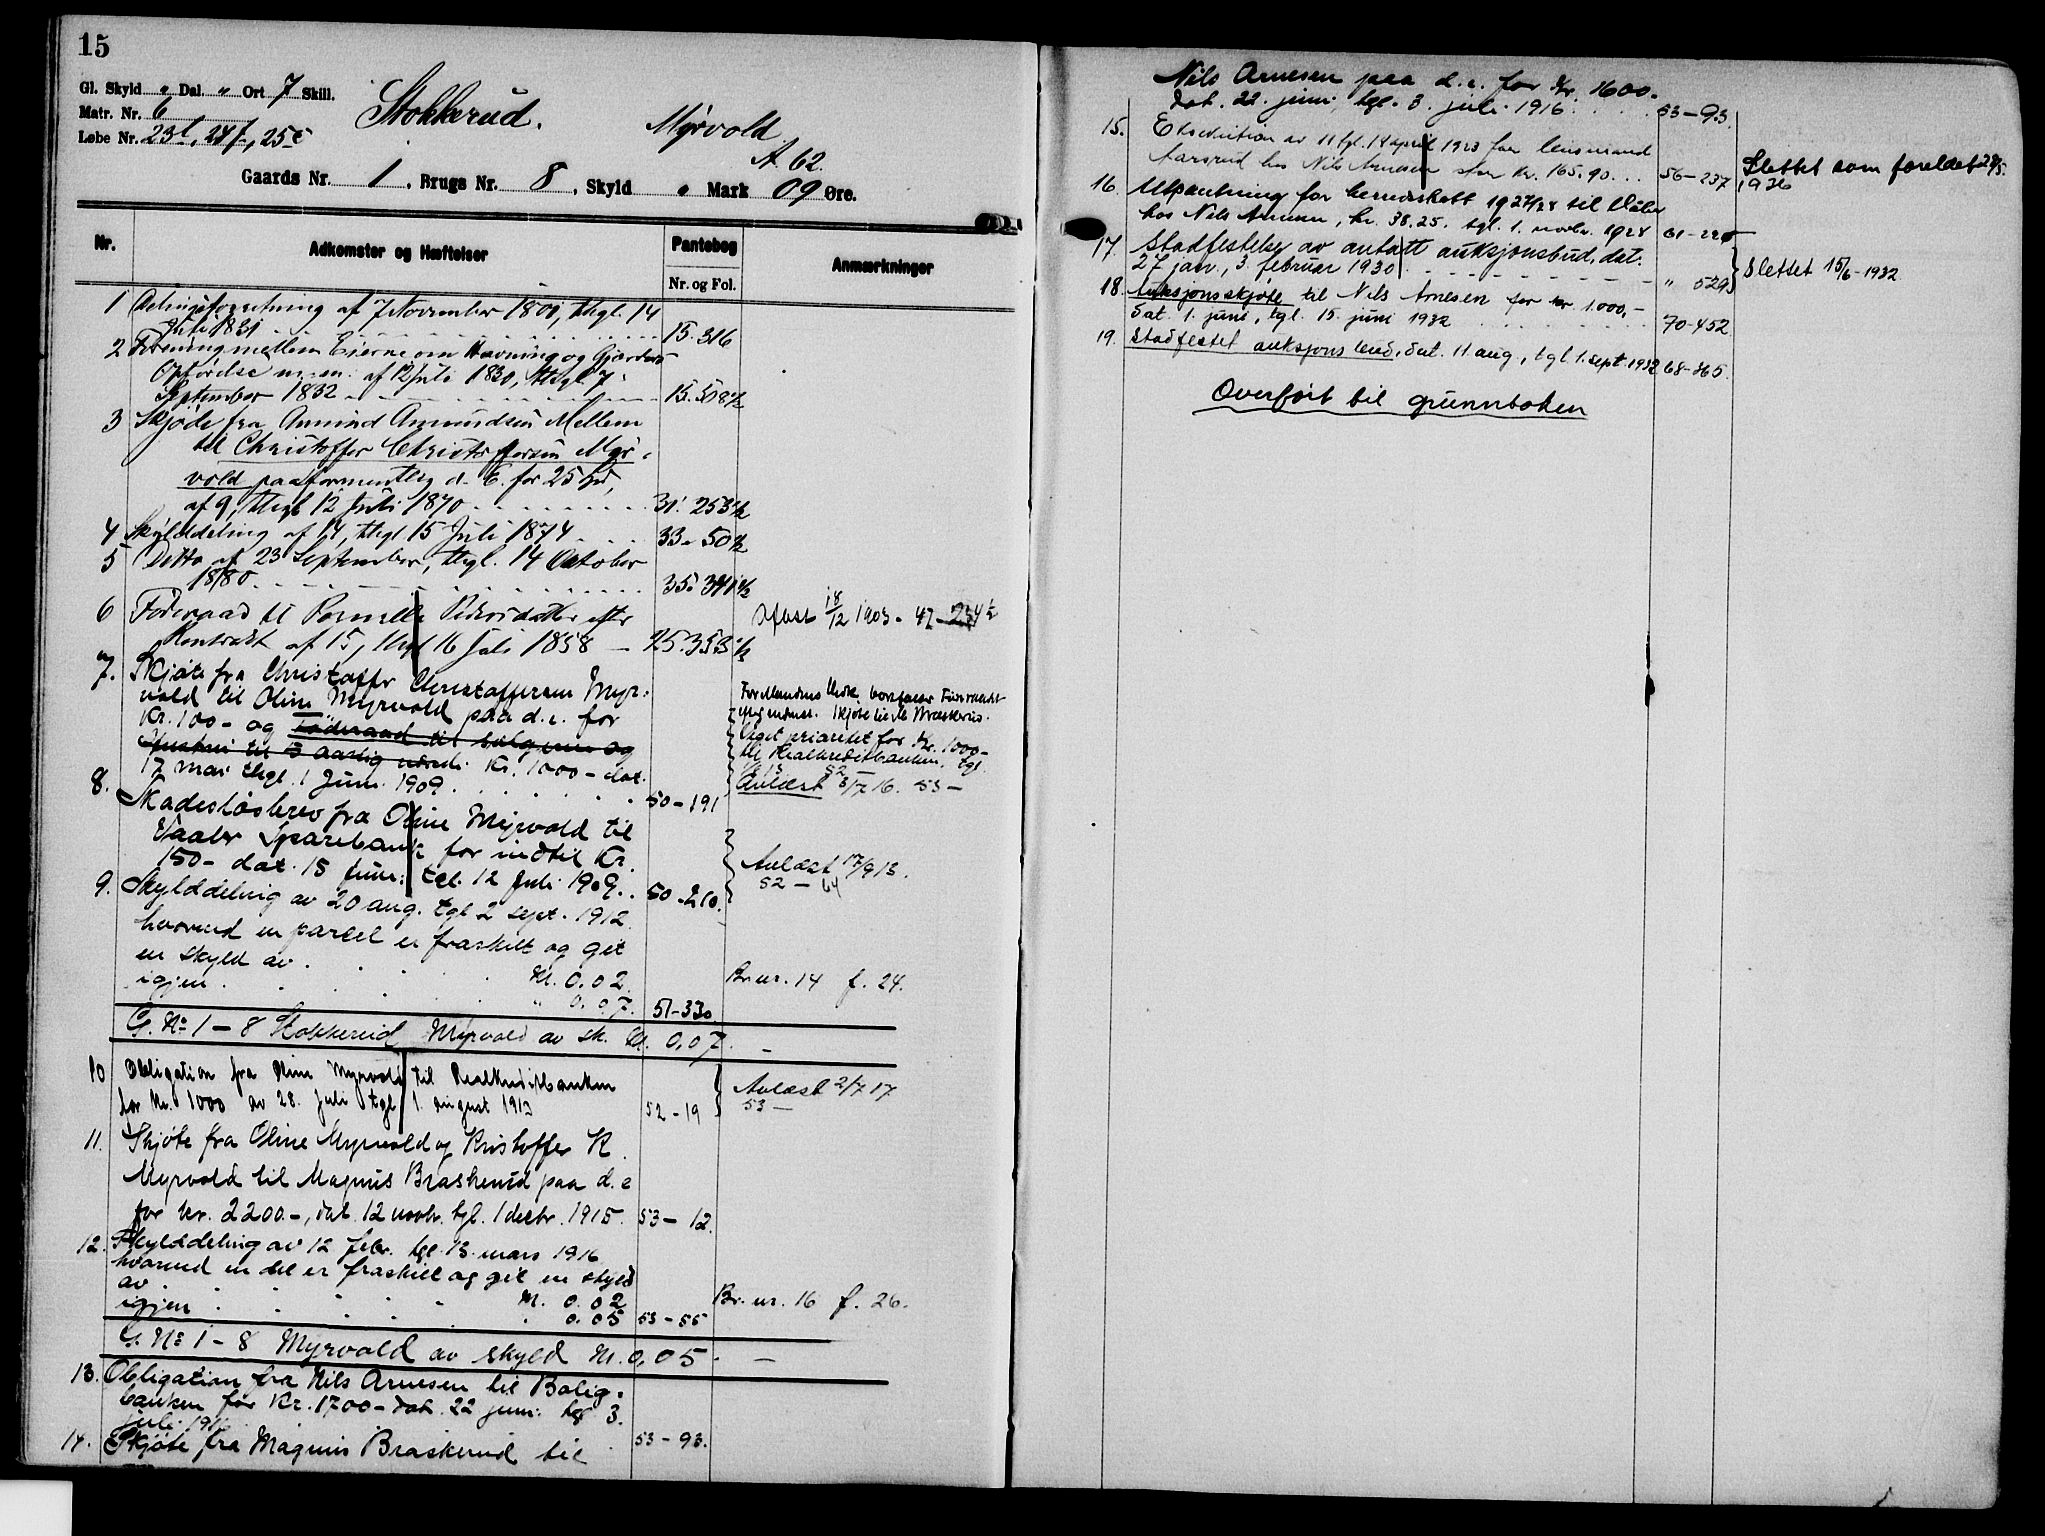 15
Gl. Skyld " Dal. " Ort 7 Skill.
Matr. Nr. 6
Løbe Nr. 23l, 24f, 25c
Stokkerud. Myrvold
A. 62.
Gaards Nr. 1, Brugs Nr. 8, Skyld " Mark 09 Øre.
Nr. Adkomster og Hæftelser Pantebog Anmærkninger
Nr. og Fol.
1 Delingsforretning af 7 November 1801, thgl. 14
Juli 1831 15. 316
2 Forening mellem Eierne om Havning og Gjærders
Opførelse m. m. af 12 Juli 1830, thgl. 7
September 1832 15. 508½
3 Skjøde fra Amund Amundsen Mellem
til Christoffer Christoffersen Myr-
vold paa formentlig d. E. for 25 Spd,
af 9, thgl 12 Juli 1870 31. 253½
4 Skylddeling af 14, thgl 15 Juli 1874 33. 50½
5 Ditto af 23 September, thgl. 14 Oktober
1880 35. 341½
6 Føderaad til Pernille Pedersdatter efter
Kontrakt af 15, thgl 16 Juli 1858 25. 353½
Aflæst 18/12 1903. 47-234½
7. Skjøte fra Christoffer Christoffersen Myr-
vold til Oline Myrvold paa d. e. for
Kr. 100- og Føderaad til Sælgeren og
Hustru til 5 aarlig værdi Kr. 1000- dat.
17 mai thgl. 1 Juni 1909. 50-191
Føderaadet
Skjøte til M. Braskerud.
Veget prioritet for Kr. 1000-
til Realkreditbanken, tgl.
52 —
Avlæst 3/7 16. 53 —
8. Skadesløsbrev fra Oline Myrvold til
Vaaler Sparebank for indtil Kr.
150- dat. 15 Juni: tgl. 12 Juli 1909. 50-210.
Avlæst 17/9 13.
52 - 64
9. Skylddeling av 20 aug. tgl 2 sept. 1912
hvorved en parcel er fraskilt og git
en skyld av M. 0.02 Br. nr. 14 f. 24.
igjen " 0.07. 51-330
G. No 1-8 Stokkerud Myrvold av sk. M. 0,07. —
10 Obligation fra Oline Myrvold til Realkreditbanken
for Kr. 1000 av 28. juli tgl 1. august 1913 52-19
Avlæst 2/7 17
53 —
11. Skjøte fra Oline Myrvold og Kristoffer K.
Myrvold til Magnus Braskerud paa d. e
for kr. 2200.-, dat. 12 novbr. tgl. 1 decbr. 1915. 53-12.
12. Skylddeling av 12 febr. tgl. 13. mars 1916
hvorved en del er fraskilt og git en skyld
av M. 0.02 Br. nr. 16 f. 26.
igjen 0.05 53-55
G. No 1-8 Myrvold av skyld M. 0,05. —
13. Obligation fra Nils Arnesen til Bolig-
banken for Kr. 1700- dat. 22 juni: tgl 3.
juli 1916 53-93.
14. Skjøte fra Magnus Braskerud til
Nils Arnesen paa d. e. for Kr. 1600.
dat. 22. juni, tgl. 3. juli 1916 53-93.
15. Eksekution av 11 tgl. 14 april 1923 for lensmand
Aarsrud hos Nils Arnesen stor kr. 165.90 56-237
Slettet som foreldet 28/5
1936
16. Utpantning for herredsskatt 1927/28 til Våler
hos Nils Arnesen, kr. 38.25. tgl. 1. novbr. 1928 61-220
17. Stadfestelse av antatt auksjonsbud, dat.
27 jan., 3. februar 1930 " 529
Slettet 15/6-1932
18. Auksjonsskjøte til Nils Arnesen for kr 1.000,-
Dat. 1. juni, tgl. 15. juni 1932 70-452
19. Stadfestet auksjonsbud, dat. 11 aug, tgl 1. sept 1932 68-365.
Overført til grunnboken